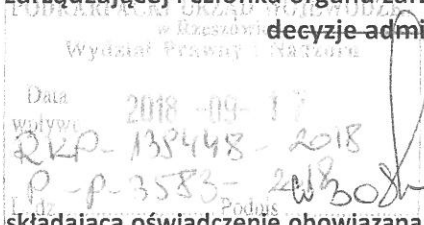 zarządzającej i członka organu zar
PODKARPACKI URZĄD WOJEWÓDZKI
w Rzeszowie
decyzje admi
Wydział Prawny i Nadzoru
Data
wpływu
2018 -09- 17
RKP- 138448 - 2018
P -P- 3583- 2018
L.dz. Podpis
składająca oświadczenie obowiązana